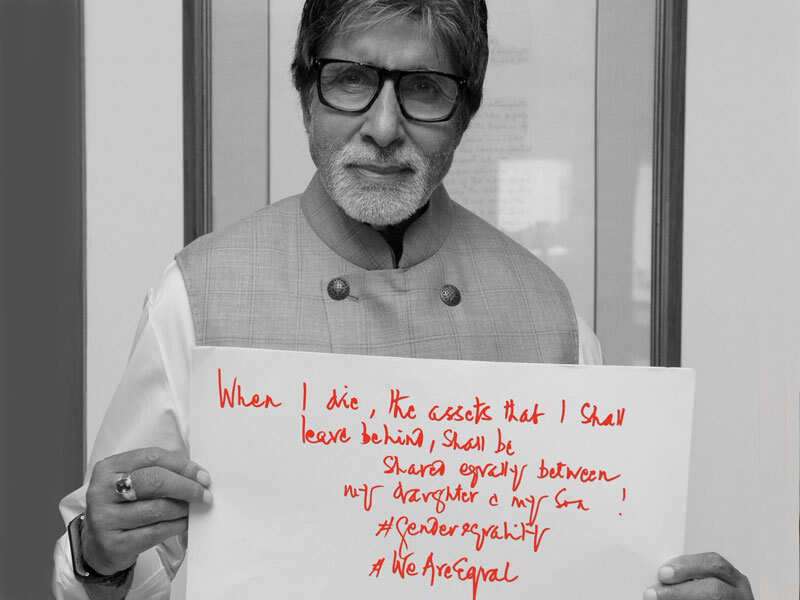 When I die, the assets that I shall
leave behind, shall be
shared equally between
my daughter & my son !
#Genderequality
#WeAreEqual